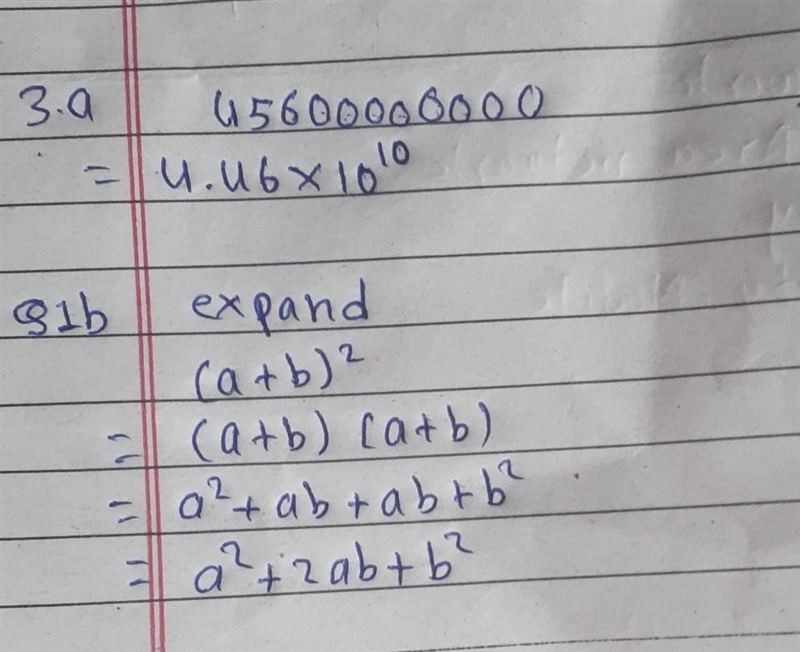 3.a 45600000000
= 4.46×10¹⁰
Q1b expand
(a+b)²
= (a+b) (a+b)
= a²+ab+ab+b²
= a²+2ab+b²